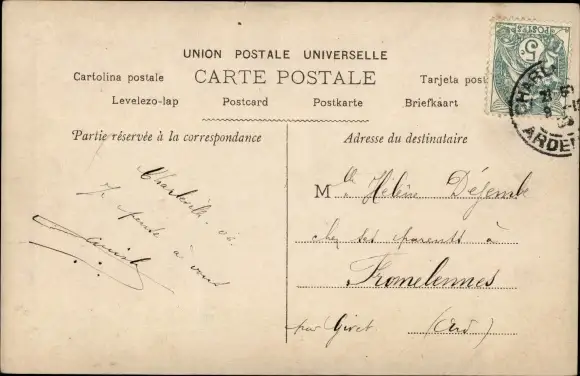 UNION POSTALE UNIVERSELLE
Cartolina postale
CARTE POSTALE
Tarjeta post
Levelezo-lap
Postcard
Postkarte
Briefkaart
Partie réservée à la correspondance
Adresse du destinataire
POSTES
5
CHARL
ARDE
Charleville. 06.
Je pense à vous
Mlle Hélène
chez ses parents à
Fromelennes
par Givet. (Ard)